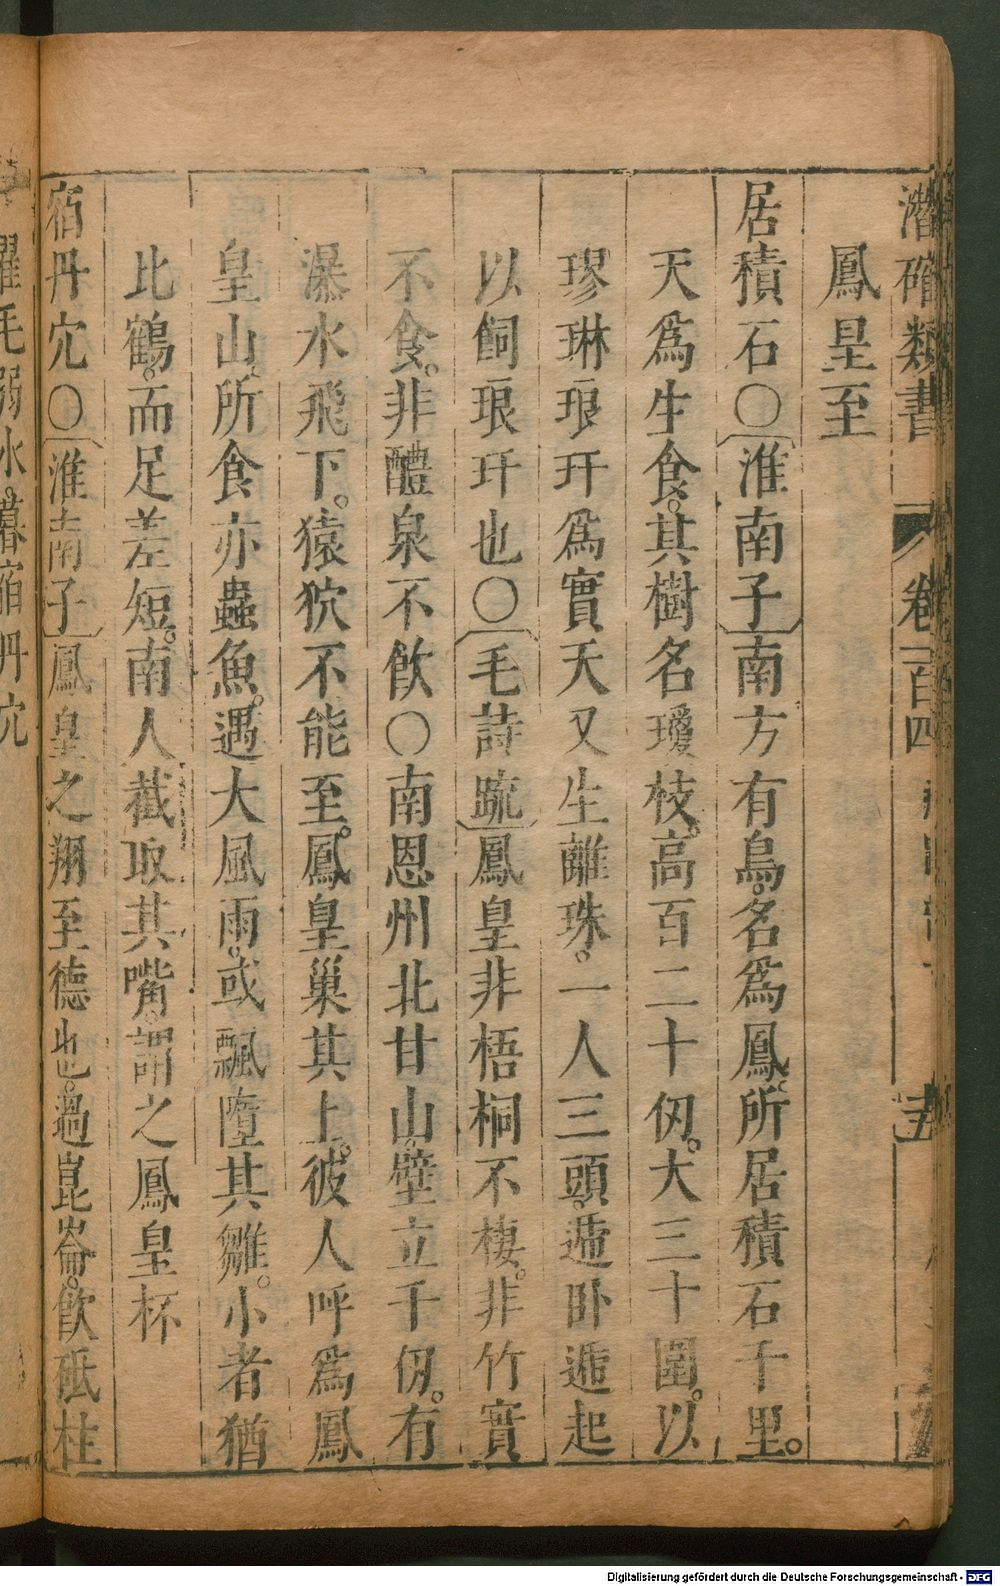 潛確類書 卷一百四 五
鳳皇至
居積石〇〔淮南子〕南方有鳥。名為鳳。所居積石千里。
天爲生食。其樹名瓊枝。高百二十仞。大三十圍。以
璆琳琅玕爲實天又生離珠。一人三頭。遞臥遞起
以飼琅玕也〇〔毛詩疏〕鳳皇非梧桐不棲。非竹實
不食。非醴泉不飲〇南恩州北甘山。壁立千仞。有
瀑水飛下。猿狖不能至。鳳皇巢其上。彼人呼爲鳳
皇山。所食亦蟲魚。遇大風雨。或飄墮其雛。小者猶
比鶴。而足差短。南人截取其嘴。謂之鳳皇杯
宿丹穴〇〔淮南子〕鳳皇之翔至德也。過崑崙。飲砥柱
濯毛弱水。暮宿丹穴
Digitalisierung gefördert durch die Deutsche Forschungsgemeinschaft - DFG